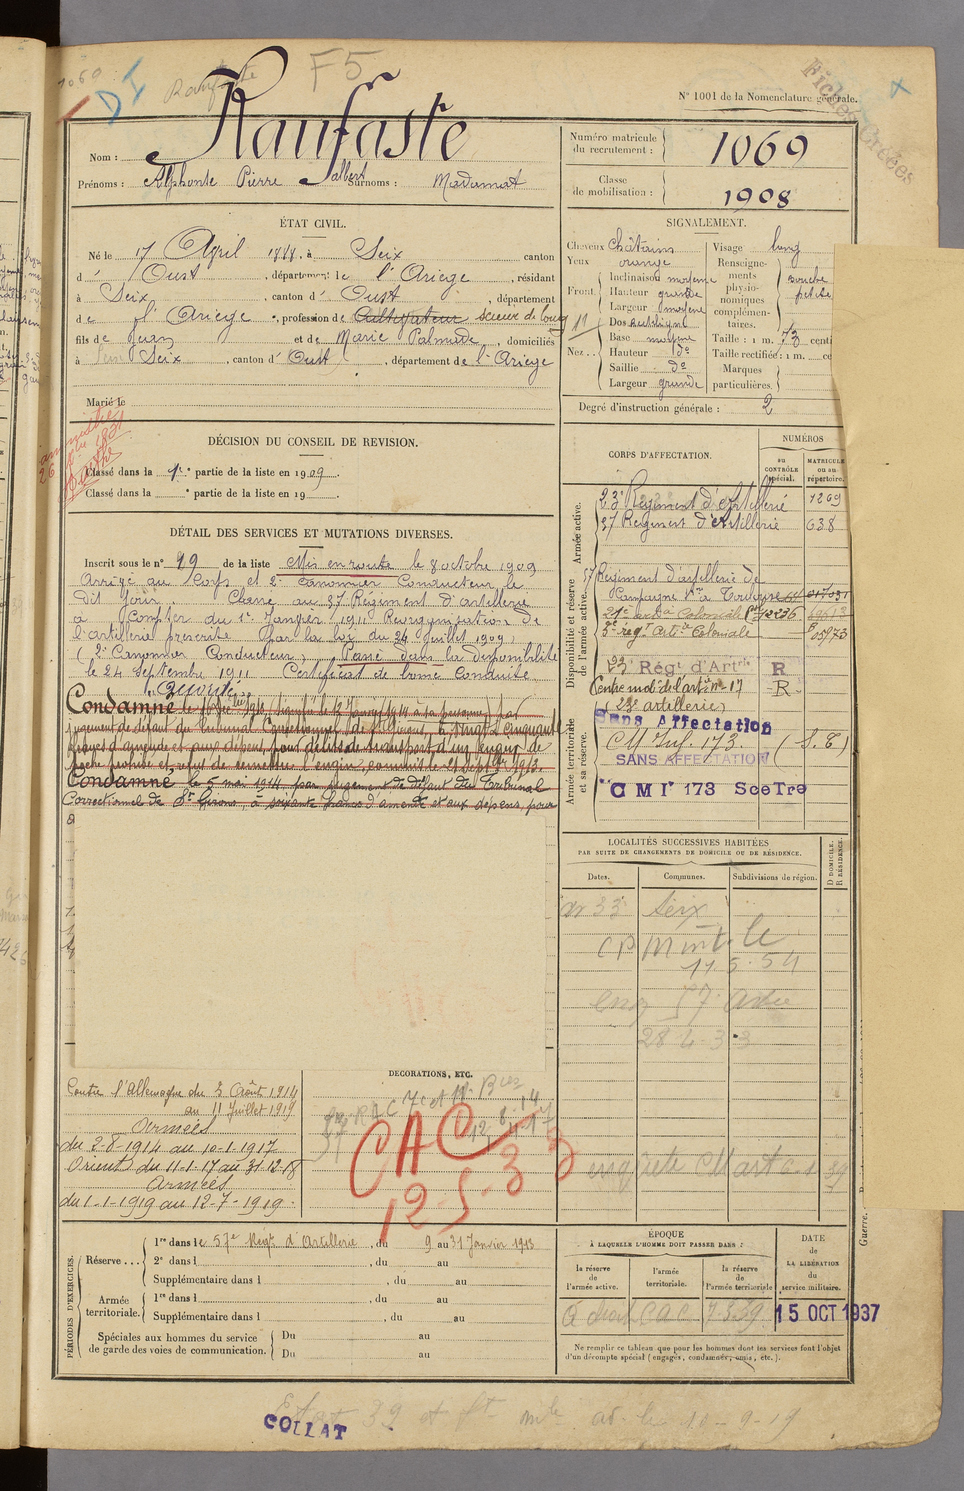 1060
Raufaste
F5
Fiches Créées
N° 1001 de la Nomenclature générale.
Nom : Raufaste
Prénoms : Alphonse Pierre Jalbert Surnoms : Madamat
Numéro matricule du recrutement : 1069
Classe de mobilisation : 1908
ÉTAT CIVIL.
Né le 17 April 1888, à Seix canton
d' Oust, département de l'Ariege, résidant
à Seix, canton d' Oust, département
de l'Ariege, profession de Cultivateur scieur de long
fils de Jean et de Marie Palmade, domiciliés
à Seix, canton d' Oust, département de l'Ariege
Marié le
SIGNALEMENT.
Cheveux châtains
Yeux orange
Front Inclinaison moyenne
Hauteur grande
Largeur moyenne
Nez Dos rectiligne
Base moyenne
Hauteur do
Saillie do
Largeur grande
Visage long
Renseignements physionomiques complémentaires.
bouche petite
Taille : 1 m. 73 centi
Taille rectifiée : 1 m. ce
Marques particulières.
Degré d'instruction générale : 2
DÉCISION DU CONSEIL DE REVISION.
Classé dans la 1e partie de la liste en 1909.
Classé dans la e partie de la liste en 19
DÉTAIL DES SERVICES ET MUTATIONS DIVERSES.
Inscrit sous le n° 19 de la liste Mis en route le 8 octobre 1909
Arrivé au Corps et 2e canonnier Conducteur le
dit jour. Classé au 57 Régiment d'artillerie
à compter du 1er Janvier 1911 Réorganisation de
l'artillerie prescrite par la loi du 24 juillet 1909.
(2e Canonnier Conducteur) Passé dans la disponibilité
le 24 Septembre 1911 Certificat de bonne Conduite
Accordé
Condamné le 16 Dec bre 1913, signifié le 13 Janvier 1914 à sa personne, par
jugement de défaut du Tribunal Correctionnel de St Girons, à vingt cinquante
francs d'amende et aux dépens, pour délits de transport d'un engin de
pêche prohibé et refus de remettre l'engin, commis le 21 septbre 1913.
Condamné le 5 mai 1914, par jugement de défaut du Tribunal
Correctionnel de St Girons à soixante francs d'amende et aux dépens, pour
CORPS D'AFFECTATION.
NUMÉROS
au CONTRÔLE spécial.
MATRICULE ou au répertoire.
Armée active.
23e Régiment d'Artillerie 1269
57 Régiment d'Artillerie 638
Disponibilité et réserve de l'armée active.
57 Régiment d'artillerie de
Campagne à Toulouse
3e rég. Artie Coloniale
23e Régt d'Artie R
Centre mobr de l'artie n° 17 R
(23e artillerie)
Armée territoriale et sa réserve.
Sans Affectation
CM Inf. 173. (S.E)
SANS AFFECTATION
CMI 173 Sce Tre
LOCALITÉS SUCCESSIVES HABITÉES
PAR SUITE DE CHANGEMENTS DE DOMICILE OU DE RÉSIDENCE.
Dates.
Communes.
Subdivisions de région.
D DOMICILE.
R RÉSIDENCE.
33 Seix
CP
11.5.54
28 4-33
Contre l'Allemagne du 3 Août 1914
au 11 Juillet 1919
Armées
du 2-8-1914 au 10-1-1917
Orient du 11-1-17 au 31-12-18
Armées
du 1-1-1919 au 12-7-1919.
DECORATIONS, ETC.
CAC
12-5-33
PÉRIODES D'EXERCICES.
Réserve... 1re dans le 57e Régt d'Artillerie, du 9 au 31 Janvier 1913
2e dans l , du au
Supplémentaire dans l , du au
Armée territoriale. 1re dans l , du au
Supplémentaire dans l , du au
Spéciales aux hommes du service de garde des voies de communication. Du au
Du au
ÉPOQUE
À LAQUELLE L'HOMME DOIT PASSER DANS :
la réserve de l'armée active.
l'armée territoriale.
la réserve de l'armée territoriale
DATE DE LA LIBÉRATION du service militaire.
CAC
15 OCT 1937
Ne remplir ce tableau que pour les hommes dont les services font l'objet
d'un décompte spécial (engagés, condamnés, omis, etc.).
COLLAT